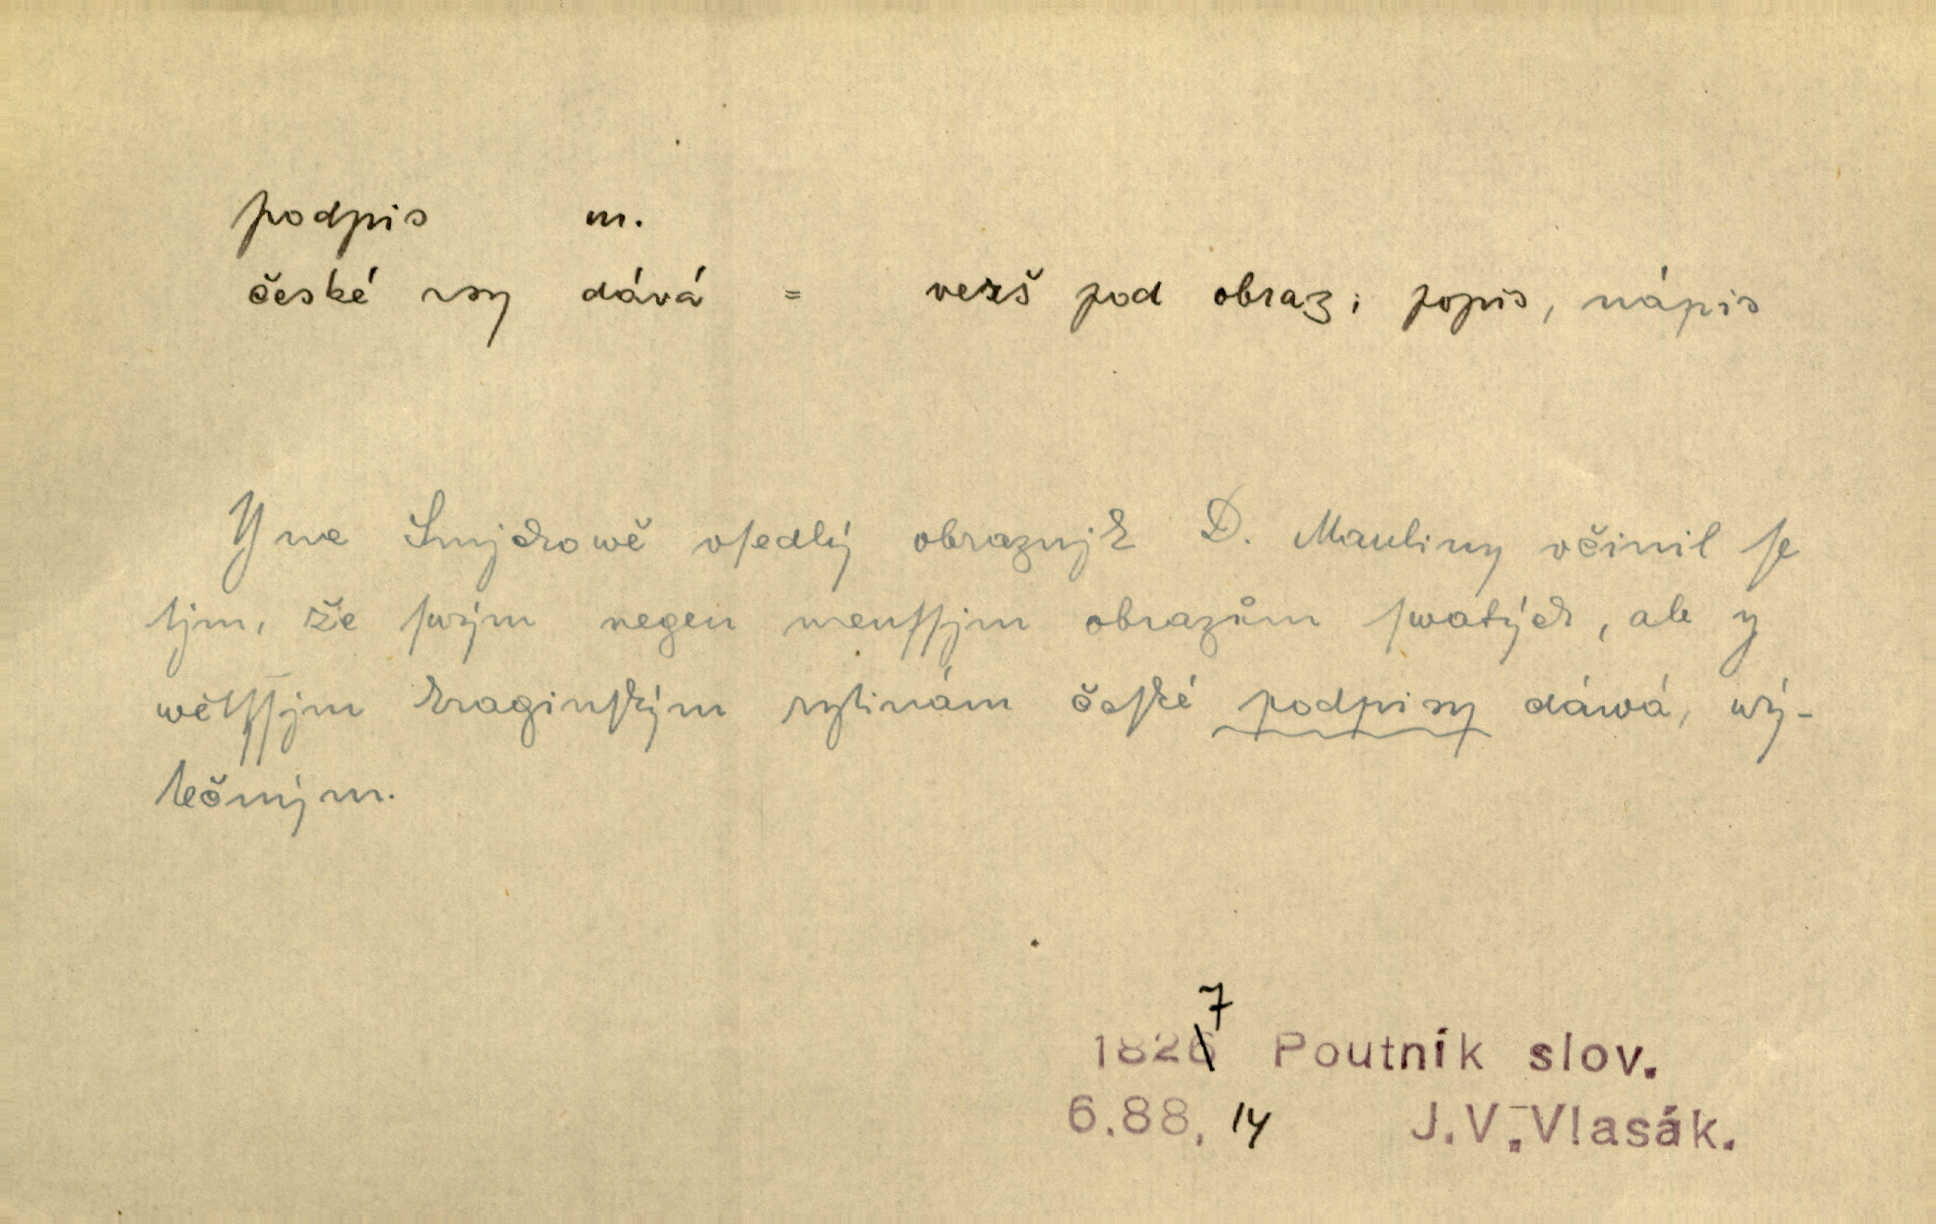 podpis m.
české -sy dává = verš pod obraz; popis, nápis
Y we Smjchowě vsedlý obraznjk D. Mauliny včinil se
tjm, že swým negen menssjm obrazům swatých, ale y
wětssjm kraginským rytinám české podpisy dáwá, wý-
tečným.
7
1826 Poutník slov.
6.88, 14 J.V. Vlasák.